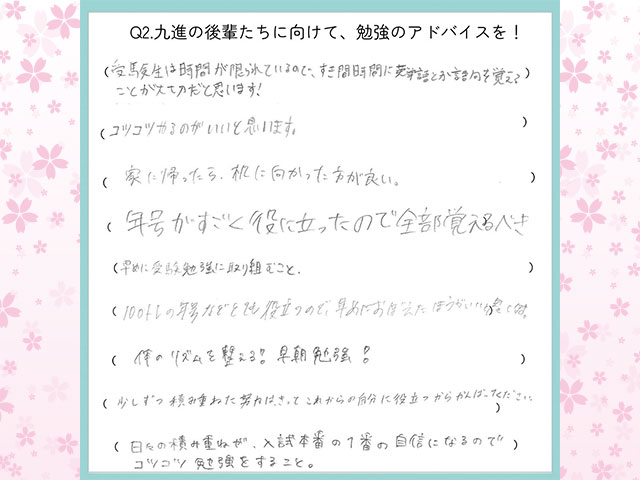 Q2.九進の後輩たちに向けて、勉強のアドバイスを！
(受験生は時間が限られているので、すき間時間に英単語とか語句を覚える)
ことが大切だと思います!
(コツコツやるのがいいと思います。)
(家に帰ったら、机に向かった方が良い。)
(年号がすごく役に立ったので全部覚えるべき
(早めに受験勉強に取り組むこと。)
の年号などとても役立つので、早めにおぼえたほうがいい
(体のリズムを整える!! 早朝勉強!!)
(少しずつ積み重ねた努力は、きっとこれからの自分に役立つからがんばってください
)
(日々の積み重ねが、入試本番の1番の自信になるので)
コツコツ勉強をすること。